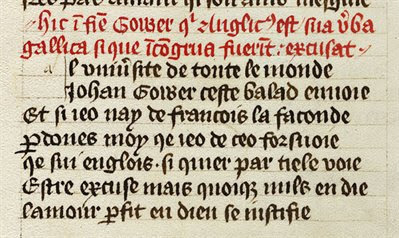 hic ī fine Gower qͥ Anglicꝰ est sua v̾ba
gallica si que īcōgrua fuerint excusat
l vniu̾site de toute le monde
Johan Gower ceste balad enuoie
Et si ieo nay de francois la faconde
ꝑdones moy qe ieo de ceo forsuoie
qe sui englois si quier par tiele voie
Estre excuse mais quoiqe nuls en die
lamour ꝑfit en dieu se iustifie